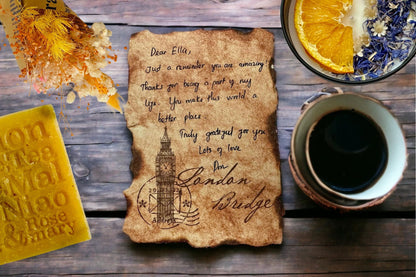 Dear Ella,
Just a reminder you are amazing
Thanks for being a part of my
life. You make this world a
better place
Truly grateful for you
Lots of love
London
Bridge
&
mary